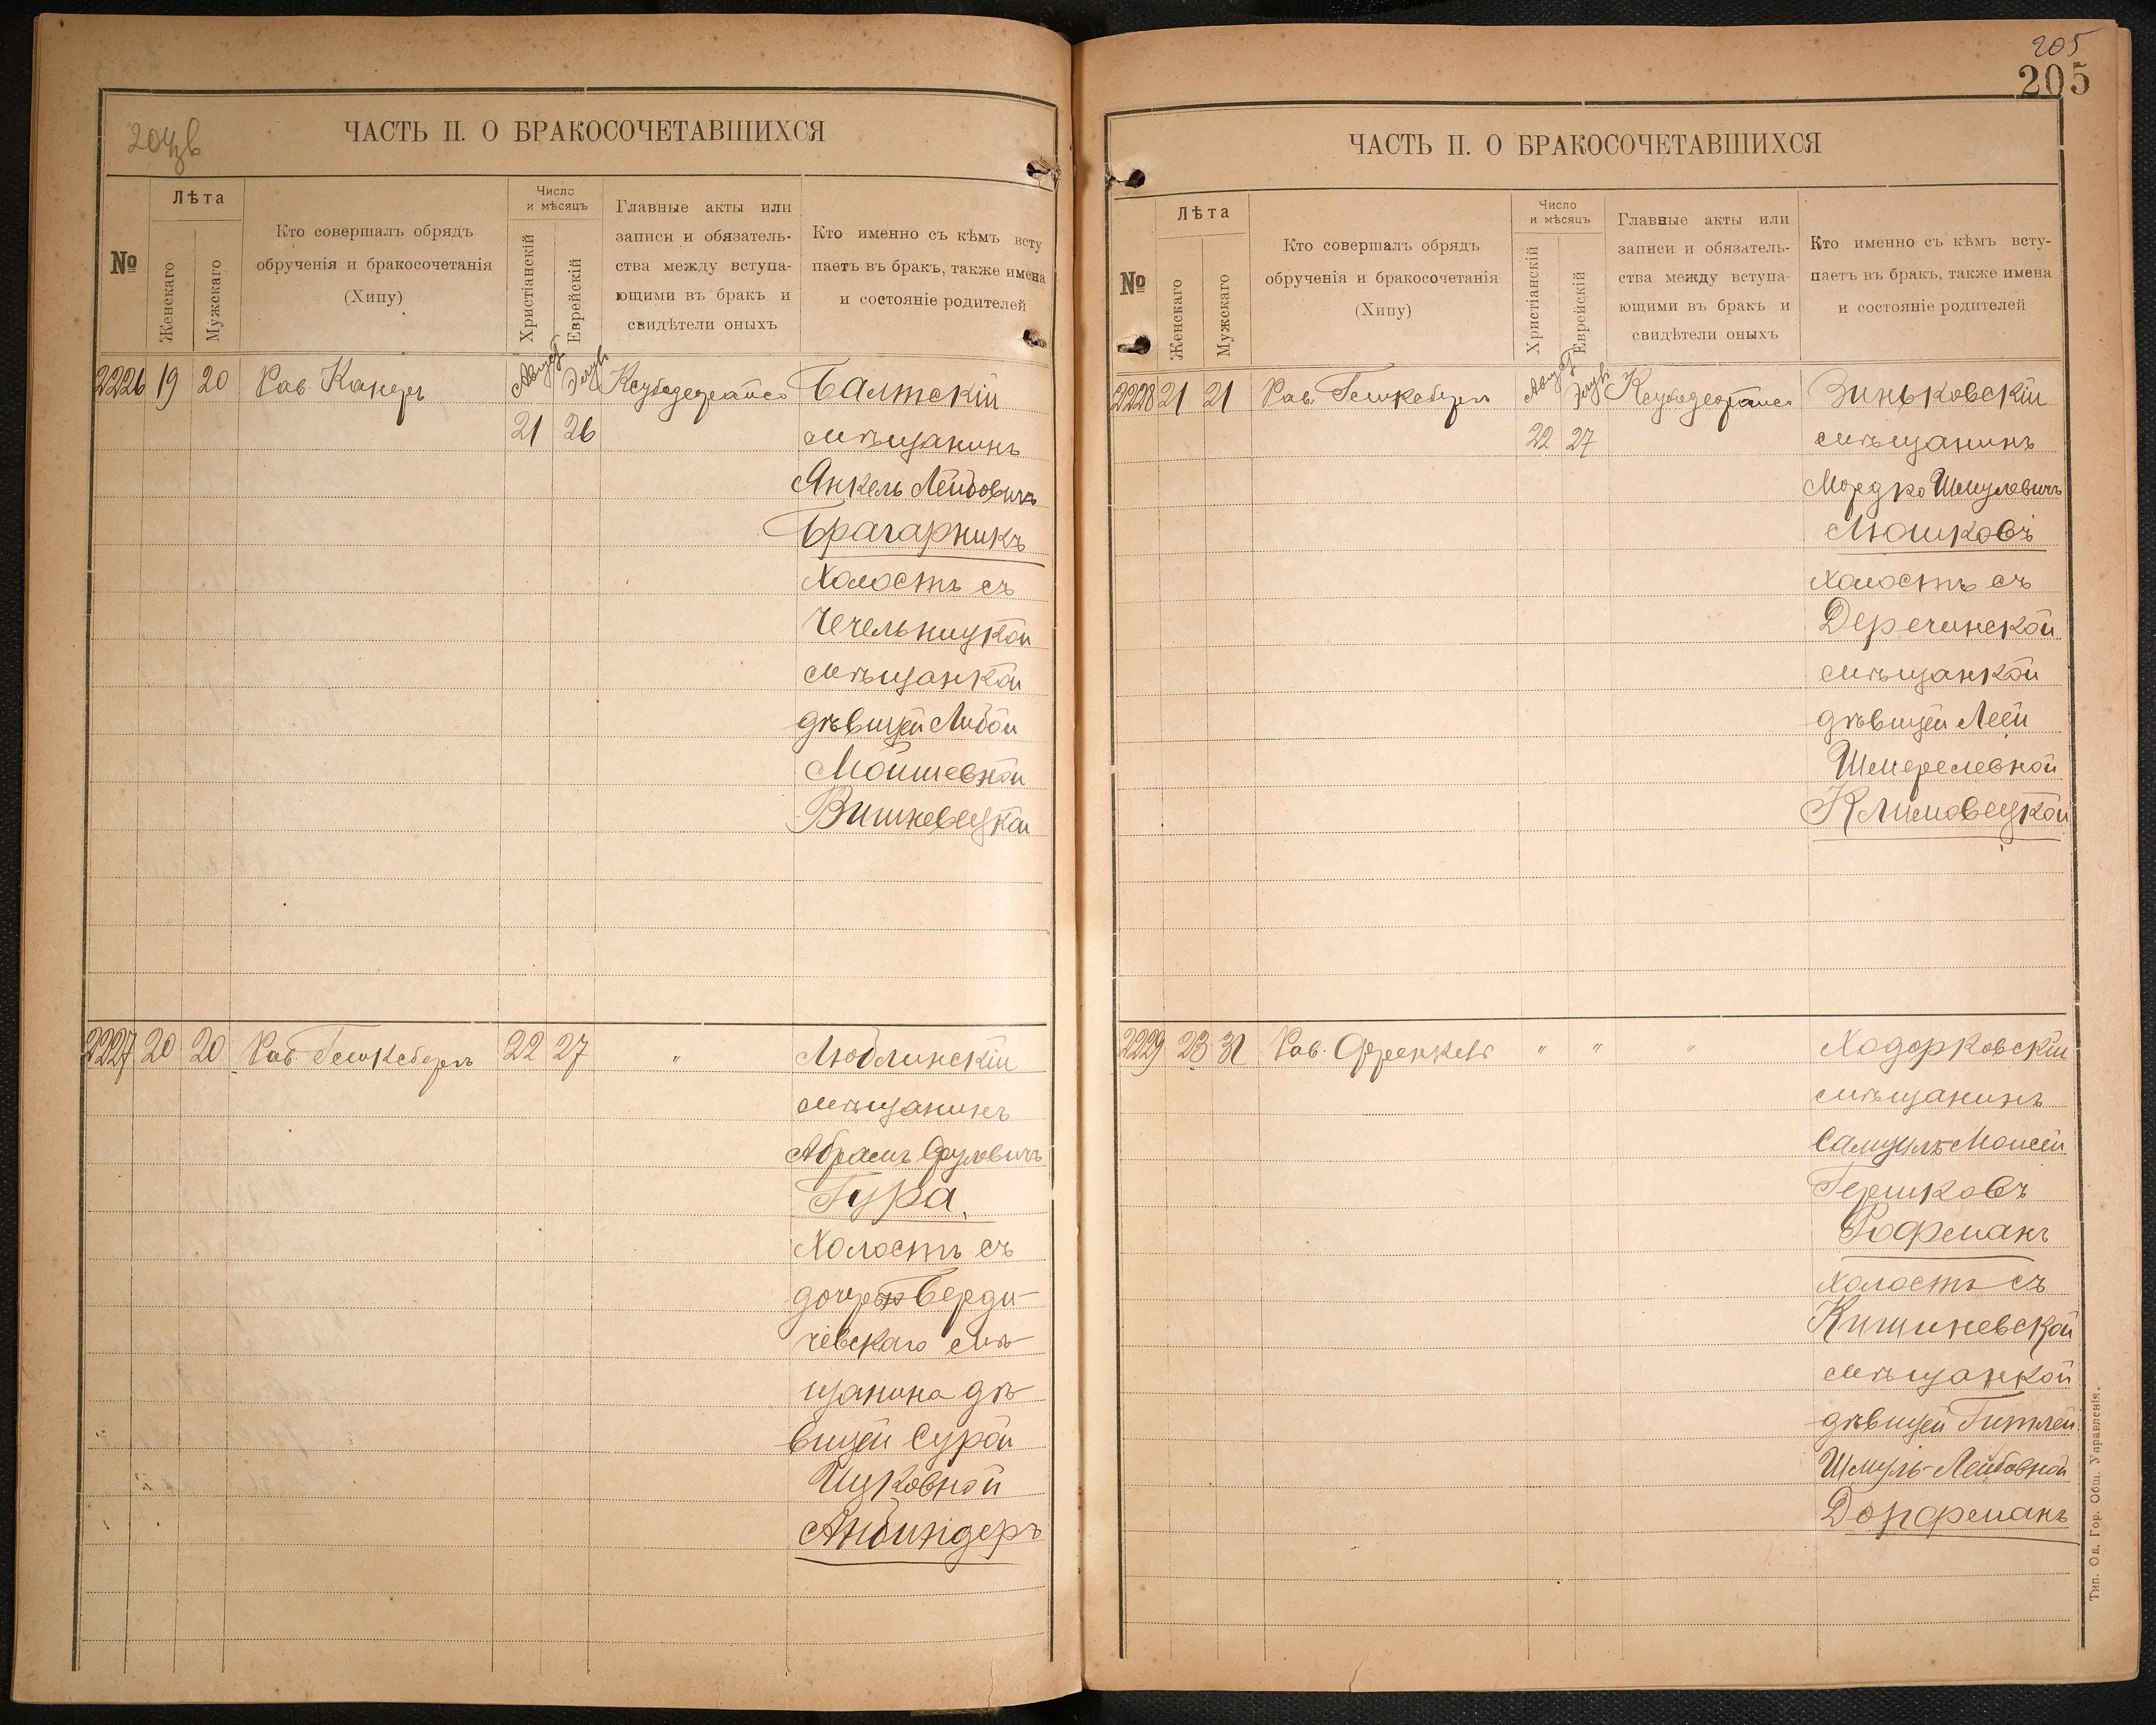 204 об
ЧАСТЬ II. О БРАКОСОЧЕТАВШИХСЯ
№
Лѣта
Женскаго
Мужскаго
Кто совершалъ обрядъ
обрученія и бракосочетанія
(Хипу)
Число
и мѣсяцъ
Христіанскій
Еврейскій
Главные акты или
записи и обязатель-
ства между вступа-
ющими въ бракъ и
свидѣтели оныхъ
Кто именно съ кѣмъ всту
паетъ въ бракъ, также имена
и состояніе родителей
2226 19 20 Рав. Август Элулъ Балтскій
21 26 мѣщанинъ
Янкель Лейбовичъ
Брагарникъ
холостъ съ
Чечельницкой
мѣщанкой
дѣвицей Либой
Мойшевной
Вишневецкой
2227 20 20 Рав. 22 27 " Люблинскій
мѣщанинъ
Абрамъ Сруловичъ
Гура
холостъ съ
дочерью Берди-
чевскаго мѣ-
щанина дѣ-
вицей Сурой
Ицковной
Айбиндеръ
205
205
ЧАСТЬ II. О БРАКОСОЧЕТАВШИХСЯ
№
Лѣта
Женскаго
Мужскаго
Кто совершалъ обрядъ
обрученія и бракосочетанія
(Хипу)
Число
и мѣсяцъ
Христіанскій
Еврейскій
Главные акты или
записи и обязатель-
ства между вступа-
ющими въ бракъ и
свидѣтели оныхъ
Кто именно съ кѣмъ всту-
паетъ въ бракъ, также имена
и состояніе родителей
2228 21 21 Рав. Август Элулъ Зиньковскій
22 27 мѣщанинъ
Мордко Шмулевичъ
Мошковъ
холостъ съ
Деречинской
мѣщанкой
дѣвицей Леей
Шмерелевной
Климовецкой
2229 23 31 Рав. Френкель " " " Ходорковскій
мѣщанинъ
Самуилъ-Моисей
Гершковъ
Рофманъ
холостъ съ
Кишиневской
мѣщанкой
дѣвицей Гитлей
Шмуль-Лейбовной
Дорфманъ
Тип. Од. Гор. Общ. Управленія.